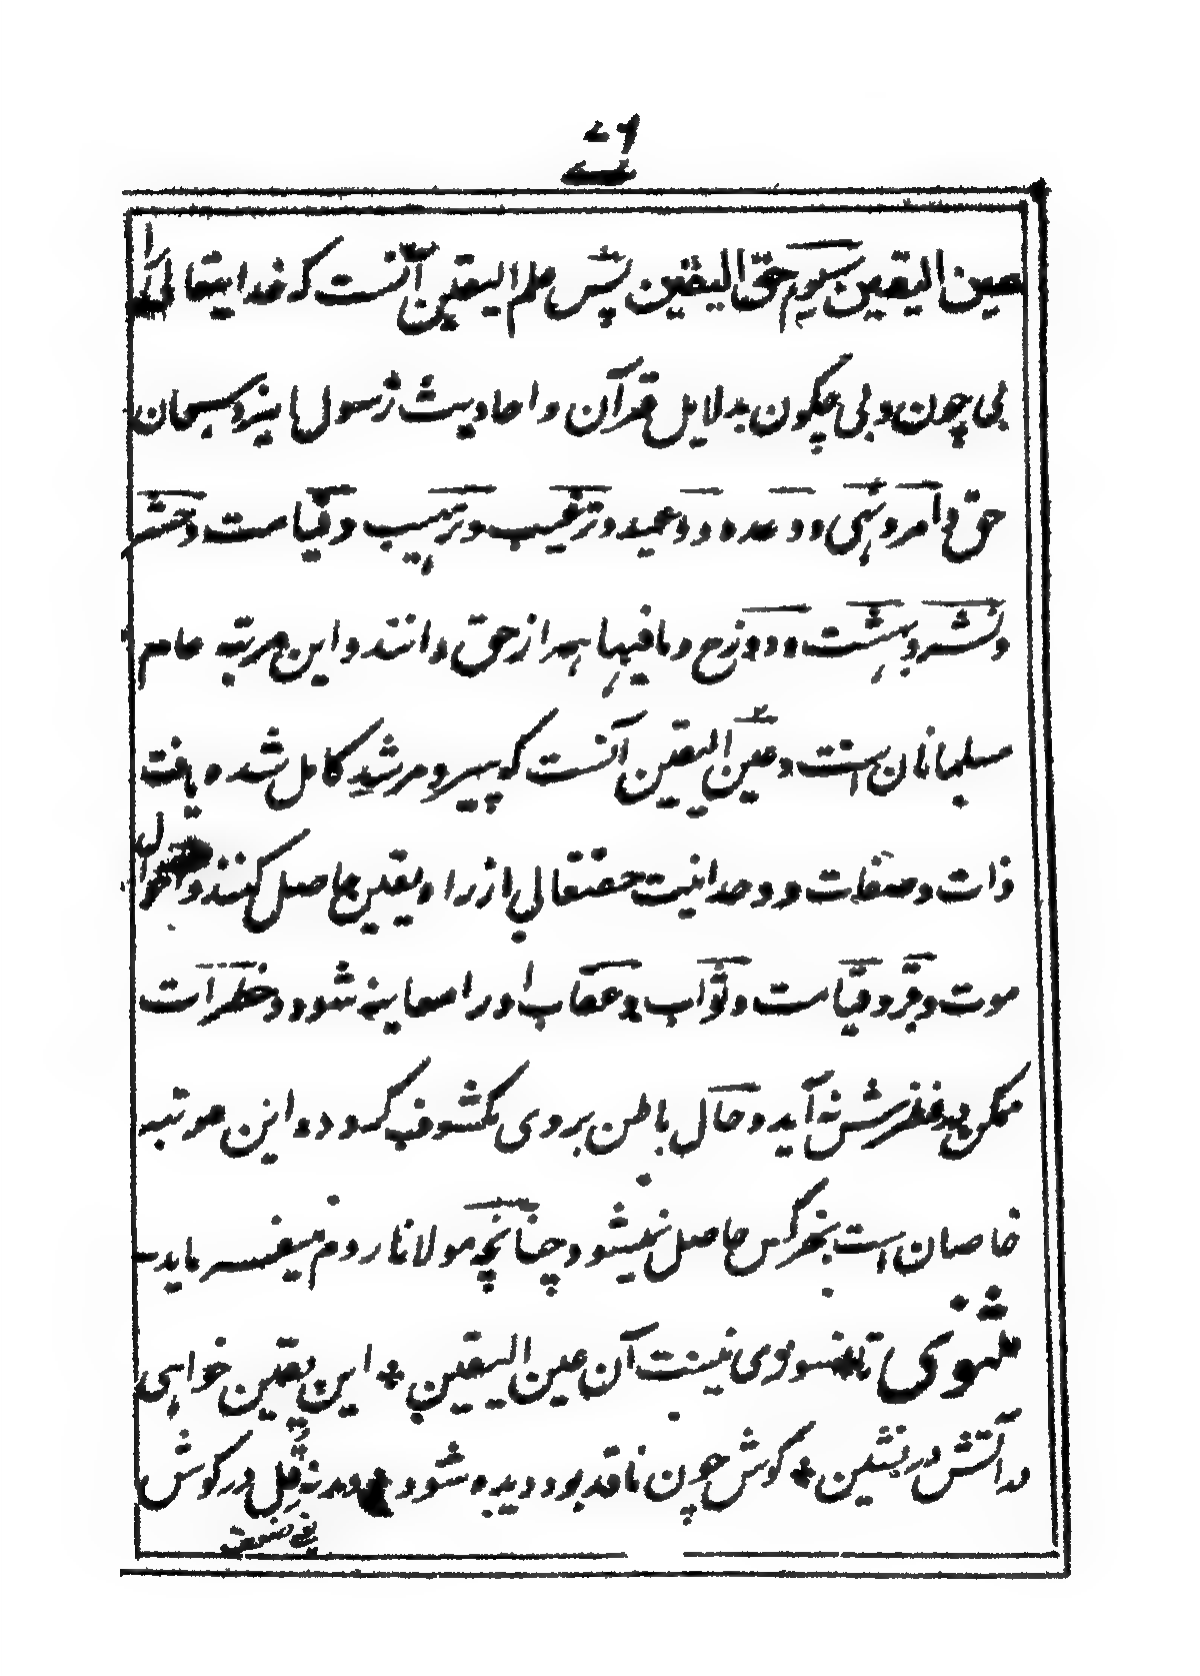 عین الیقین سیوم حق الیقین پس علم الیقین آنست که خدایتعالی را
بی چون و بی چگون بدلایل قرآن و احادیث رسول ایزد سبحان
حق و امر و نهی و وعده و وعید و ترغیب و ترهیب و قیامت و حشر
و نشر و بهشت و دوزخ و مافیها همه از حق دانند و این مرتبه عام
مسلمانان است و عین الیقین آنست که پیر و مرشد کامل شده یافت
ذات و صفات و وحدانیت حقتعالی از راه یقین حاصل کنند و احوال
موت و قبر و قیامت و ثواب و عقاب او را معاینه شود و خطرات
منکر پیغفرش نه آید و حال باطن بروی مکشوف گردد و این مرتبه
خاصان است بهر کس حاصل نمیشود چنانچه مولانا روم میفرماید
مثنوی تا نسوزی نیست آن عین الیقین * این یقین خواهی
در آتش در نشین * گوش چون نافذ بود دیده شود * ورنه قل در گوش